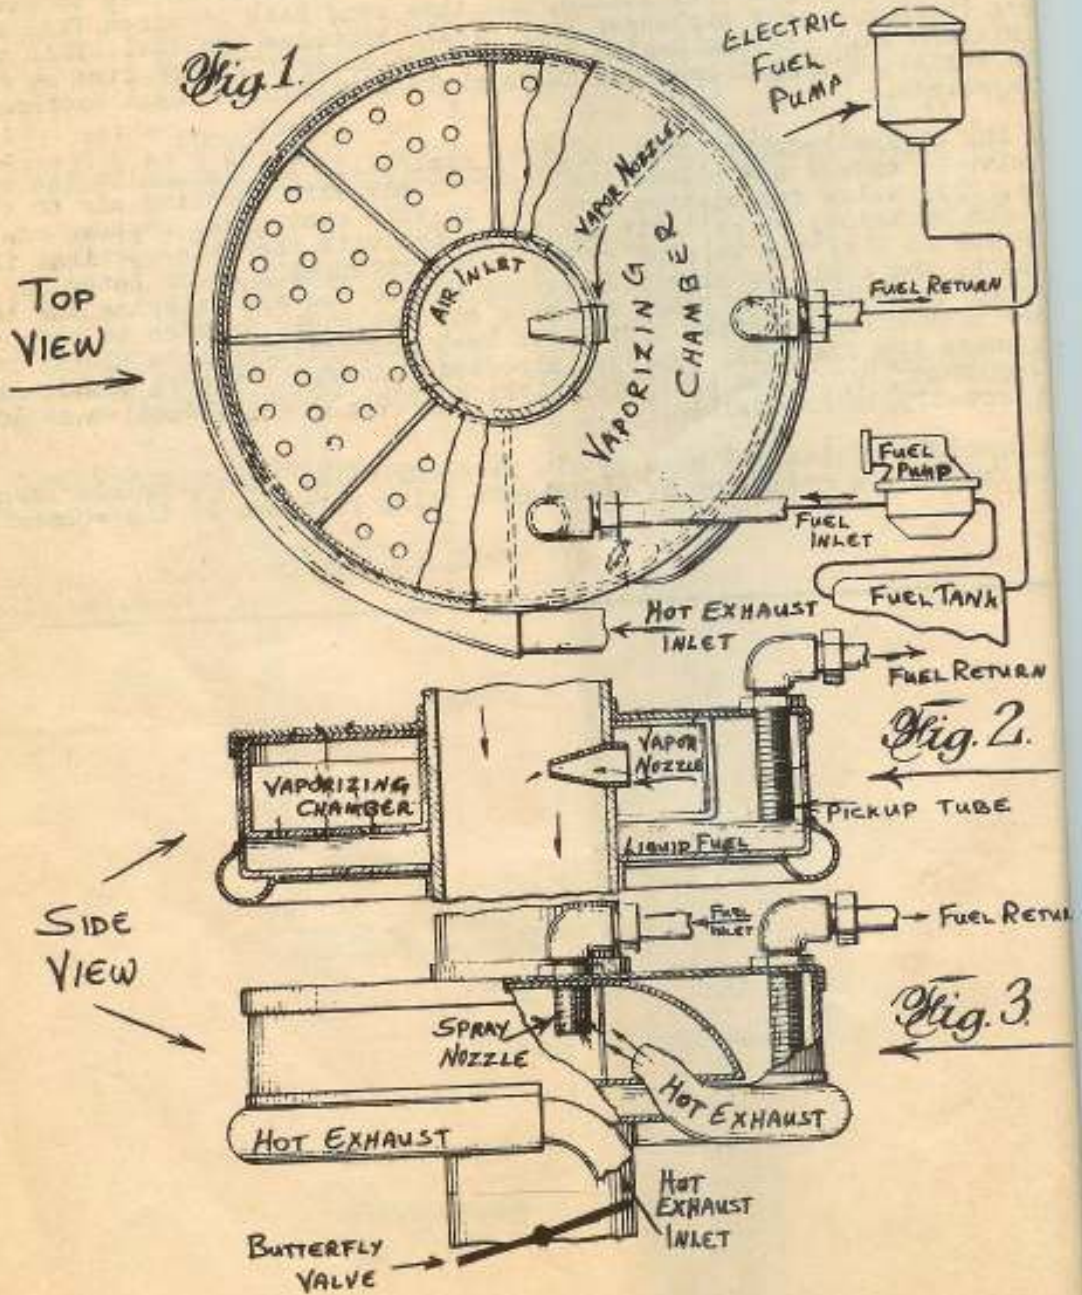 Fig. 1.
ELECTRIC
FUEL
PUMP
TOP
VIEW
AIR INLET
VAPOR NOZZLE
VAPORIZING
CHAMBER
FUEL RETURN
FUEL
PUMP
FUEL
INLET
FUEL TANK
HOT EXHAUST
INLET
FUEL RETURN
Fig. 2.
VAPORIZING
CHAMBER
VAPOR
NOZZLE
PICKUP TUBE
LIQUID FUEL
SIDE
VIEW
FUEL
INLET
FUEL RETU
Fig. 3
SPRAY
NOZZLE
HOT EXHAUST
HOT EXHAUST
HOT
EXHAUST
INLET
BUTTERFLY
VALVE